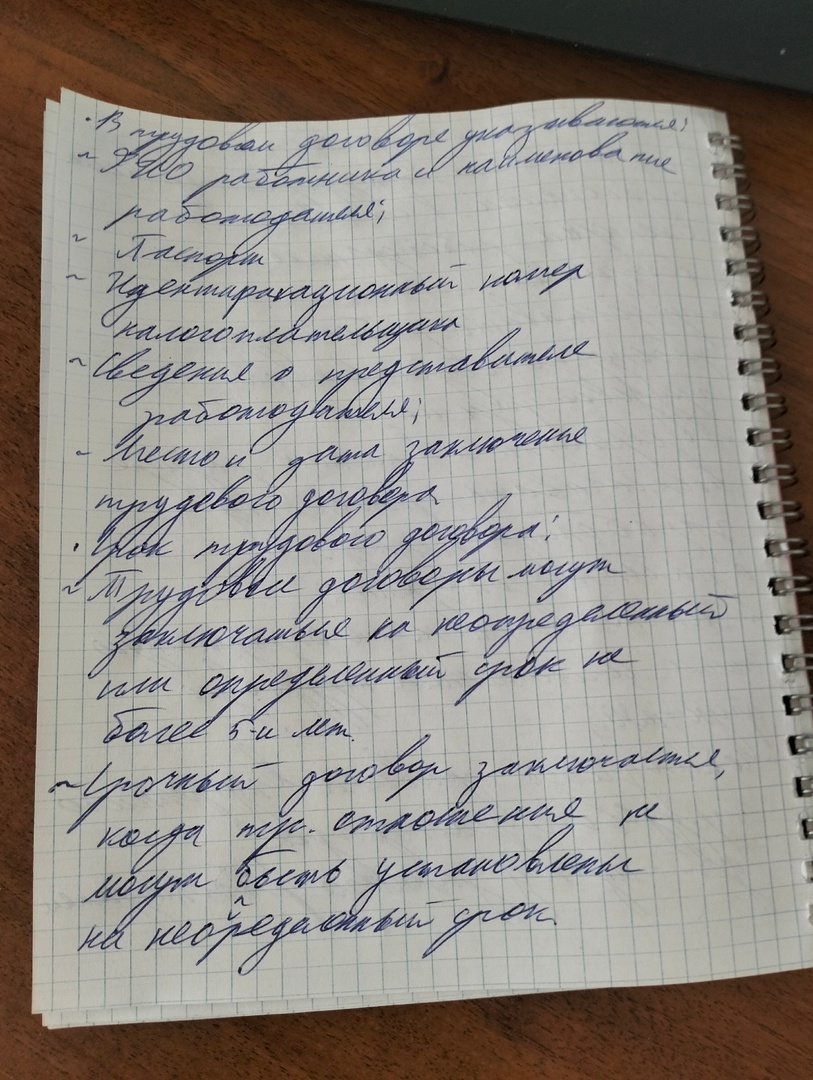 · В трудовом договоре указываются:
~ ФИО работника и наименование
работодателя;
~ Паспорт
~ Идентификационный номер
налогоплательщика
~ Сведения о представителе
работодателя;
- Место и дата заключение
трудового договора
· Срок трудового договора:
~ Трудовые договоры могут
заключаться на неопределенный
или определенный срок не
более 5-и лет.
~ Срочный договор заключается,
когда тр. отношения не
могут быть установлены
на неопределенный срок.